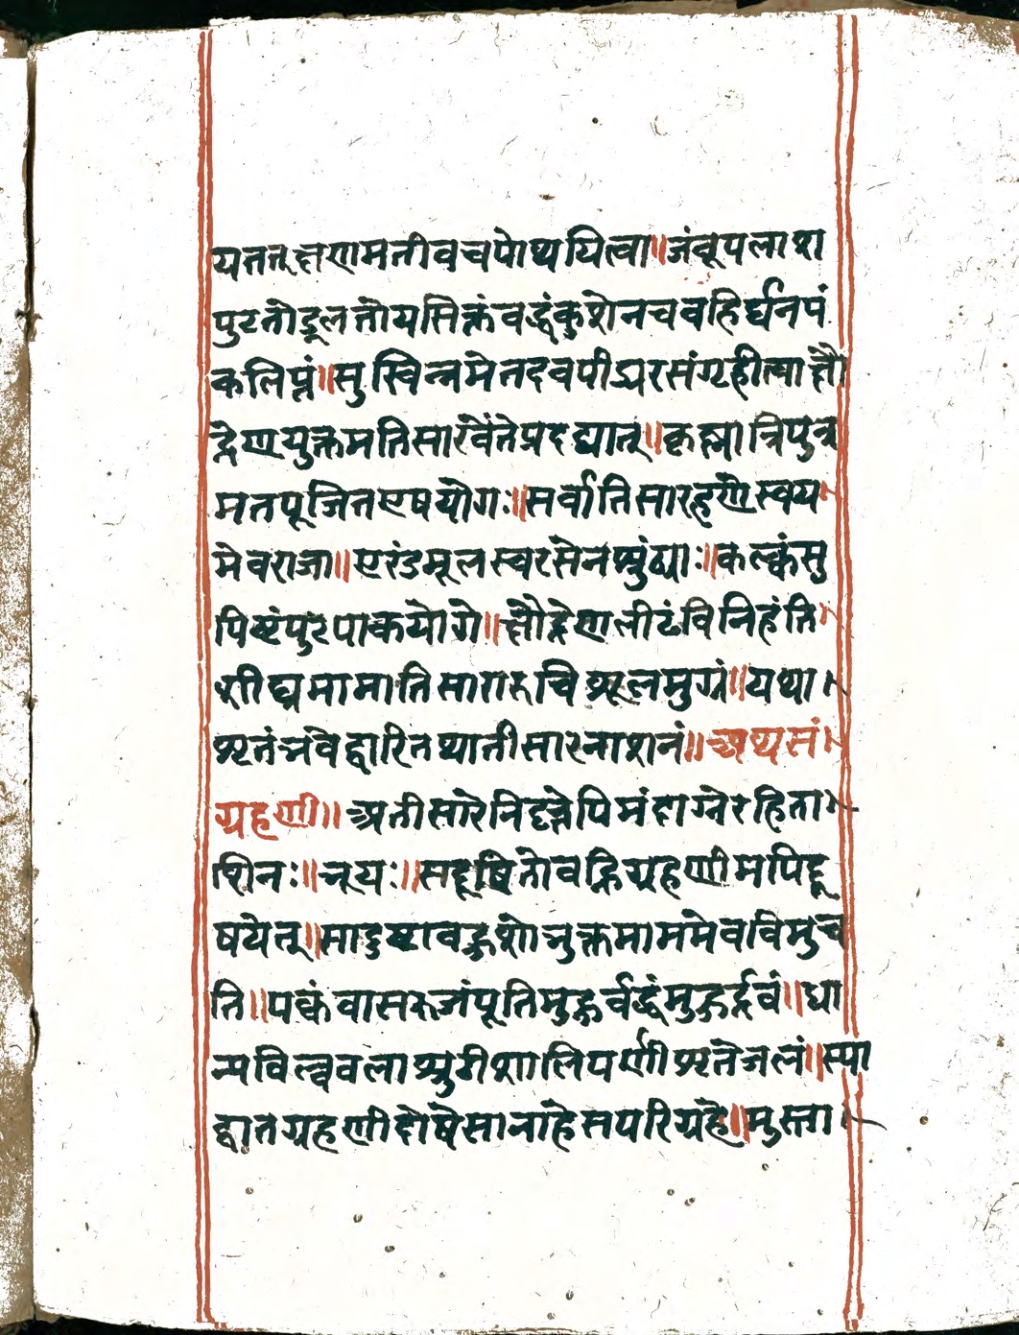 यतत्क्षणमतीवचपोथयित्वा॥जंबूपलाश
पुटतोडूलतोयसिक्तंवद्धंकुशेनचवहिर्घनपं
कलिप्तं॥सुस्विन्नमेतदवपीड्यरसंगृहीत्वाक्षौ
द्रेणयुक्तमतिसारवंतेप्रदद्यात्॥कृष्णात्रिपुत्र
मतपूजितएषयोगः॥सर्वातिसारहरणेस्वय
मेवराजा॥एरंडमूलस्वरसेनशुंठ्याः॥कल्कंसु
पिष्टंपुटपाकयोगे॥क्षौद्रेणलीढंविनिहंति
शीघ्रमामातिसारारुचिशूलमुग्रं॥यथा
शृतंभवेद्वारितथातीसारनाशनं॥अथसं
ग्रहणी॥अतीसारेनिवृत्तेपिमंदाग्नेरहिता
शिनः॥भूयः॥सदूषितोवह्निग्रहणीमपिदू
षयेत्॥सादुष्टावहुशोभुक्तमाममेवविमुंच
ति॥पक्वंवासरुजंपूतिमुहुर्वद्धंमुहुर्द्रवं॥धा
न्यविल्ववलाशुठीशालिपर्णीशृतंजलं॥स्या
द्वातग्रहणीदोषेसानाहेसपरिग्रहे॥मुस्ता